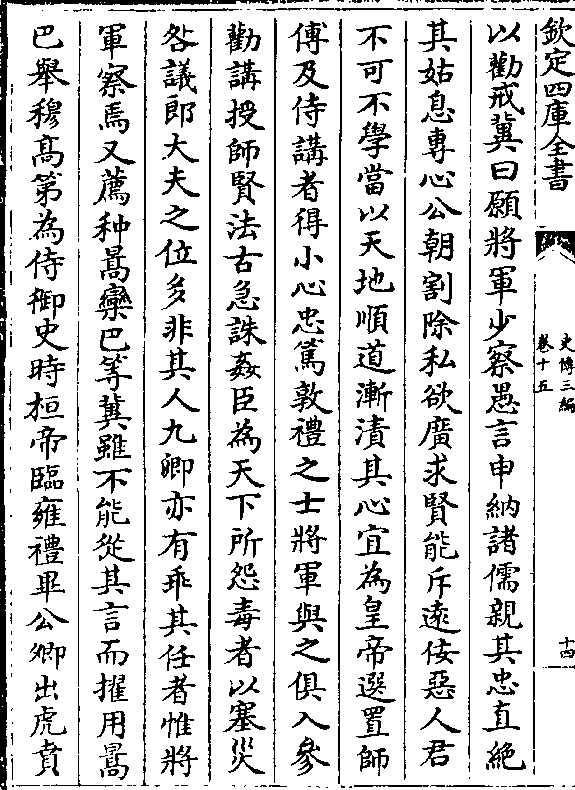 欽定四庫全書
史傳三編
卷十五
十四
以勸戒冀曰願將軍少察愚言申納諸儒親其忠直絶
其姑息專心公朝割除私欲廣求賢能斥逺佞惡人君
不可不學當以天地順道漸漬其心宜為皇帝選置師
傅及侍講者得小心忠篤敦禮之士將軍與之俱入參
勸講授師賢法古急誅姦臣為天下所怨毒者以塞災
咎議郎大夫之位多非其人九卿亦有乖其任者惟將
軍察焉又薦种暠欒巴等冀雖不能從其言而擢用暠
巴舉穆髙第為侍御史時桓帝臨雍禮畢公卿出虎賁